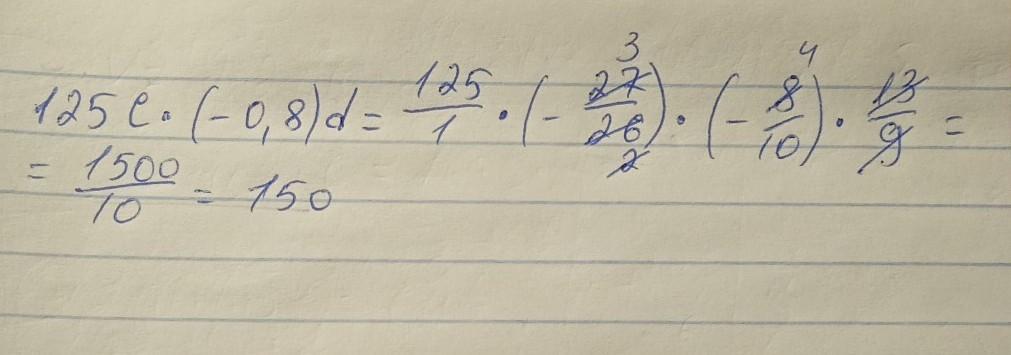 125 c · (-0,8)d = 125/1 · (- 27/26) · (- 8/10) · 13/9 =
= 1500/10 = 150
3
4
2